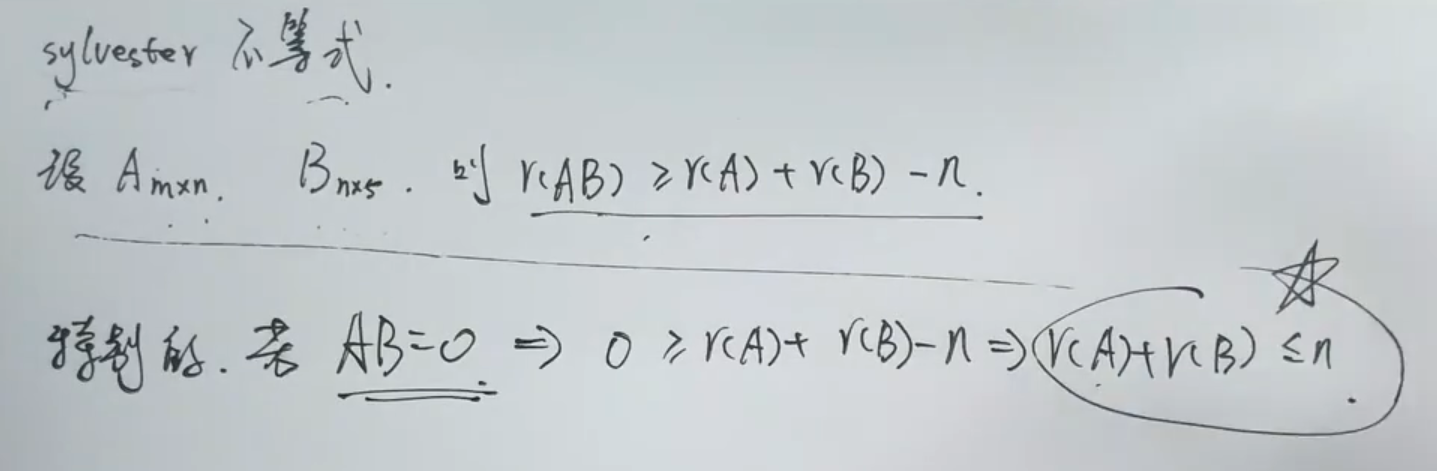 sylvester 不等式.
设 Am×n. Bn×s. 则 r(AB) ≥ r(A) + r(B) - n.
特别的. 若 AB=0 ⇒ 0 ≥ r(A)+ r(B)-n ⇒ r(A)+r(B) ≤ n.